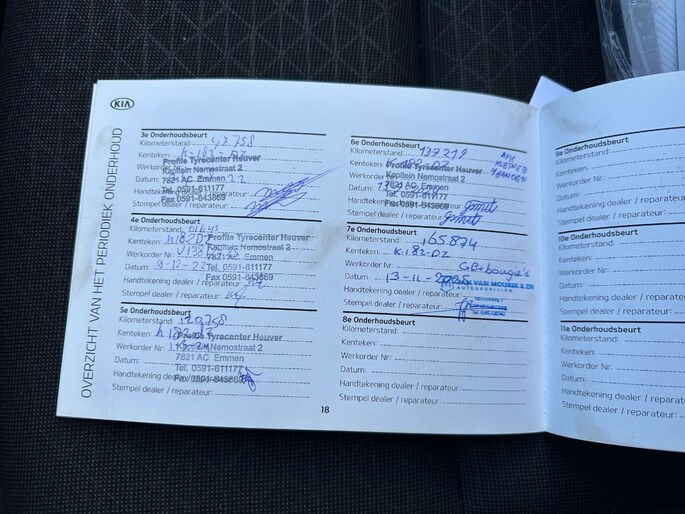 KIA
OVERZICHT VAN HET PERIODIEK ONDERHOUD
3e Onderhoudsbeurt
Kilometerstand:
Kenteken: K-182-DZ
Werkorder Nr
Datum:
Handtekening
Stempel dealer / reparateur:
Profile Tyrecenter Heuver
Kapitein Nemostraat 2
7821 AC Emmen
Tel. 0591-611177
Fax 0591-643869
4e Onderhoudsbeurt
Kilometerstand:
Kenteken:
Werkorder Nr
Datum: 9-12-22
Handtekening dealer
Stempel dealer / reparateur:
Profile Tyrecenter Heuver
Kapitein Nemostraat 2
7821 AC Emmen
Tel. 0591-611177
Fax 0591-643869
5e Onderhoudsbeurt
Kilometerstand: 120758
Kenteken:
Werkorder Nr
Datum:
Handtekening dealer / reparateur:
Stempel dealer / reparateur:
Profile Tyrecenter Heuver
Kapitein Nemostraat 2
7821 AC Emmen
Tel. 0591-611177
Fax 0591-643869
18
6e Onderhoudsbeurt
Kilometerstand: 137219
Kenteken: K-182-DZ
Werkorder Nr
Datum:
Handtekening dealer / reparateur:
Stempel dealer / reparateur:
Profile Tyrecenter Heuver
Kapitein Nemostraat 2
7821 AC Emmen
Tel. 0591-611177
Fax 0591-643869
7e Onderhoudsbeurt
Kilometerstand: 165874
Kenteken: K-182-DZ
Werkorder Nr: GB+bougie's
Datum: 13-11-2025
VAN MOURIK & ZN
Handtekening dealer / reparateur:
Stempel dealer / reparateur:
8e Onderhoudsbeurt
Kilometerstand:
Kenteken:
Werkorder Nr:
Datum:
Handtekening dealer / reparateur:
Stempel dealer / reparateur:
9e Onderhoudsbeurt
Kilometerstand:
Kenteken:
Werkorder Nr:
Datum:
Handtekening dealer / reparateur:
Stempel dealer / reparateur:
10e Onderhoudsbeurt
Kilometerstand:
Kenteken:
Werkorder Nr:
Datum:
Handtekening dealer / reparateur:
Stempel dealer / reparateur:
11e Onderhoudsbeurt
Kilometerstand:
Kenteken:
Werkorder Nr:
Datum:
Handtekening dealer /
Stempel dealer / reparateur: